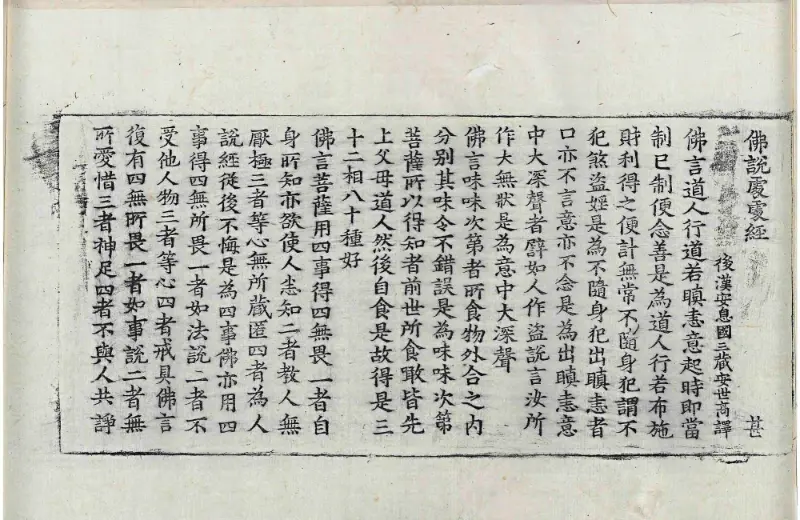 佛說處處經　甚
後漢安息國三藏安世高譯
佛言道人行道若瞋恚意起時即當
制已制便念善是為道人行若布施
財利得之便計無常不隨身犯謂不
犯煞盜婬是為不隨身犯出瞋恚者
口亦不言意亦不念是為出瞋恚意
中大深聲者譬如人作盜說言汝所
作大無狀是為意中大深聲
佛言味味次第者所食物外合之內
分別其味令不錯誤是為味味次第
菩薩所以得知者前世所食噉皆先
上父母道人然後自食是故得是三
十二相八十種好
佛言菩薩用四事得四無畏一者自
身所知亦欲使人悉知二者教人無
厭極三者等心無所藏匿四者為人
說經從後不悔是為四事佛亦用四
事得四無所畏一者如法說二者不
受他人物三者等心四者戒具佛言
復有四無所畏一者如事說二者無
所愛惜三者神足四者不與人共諍